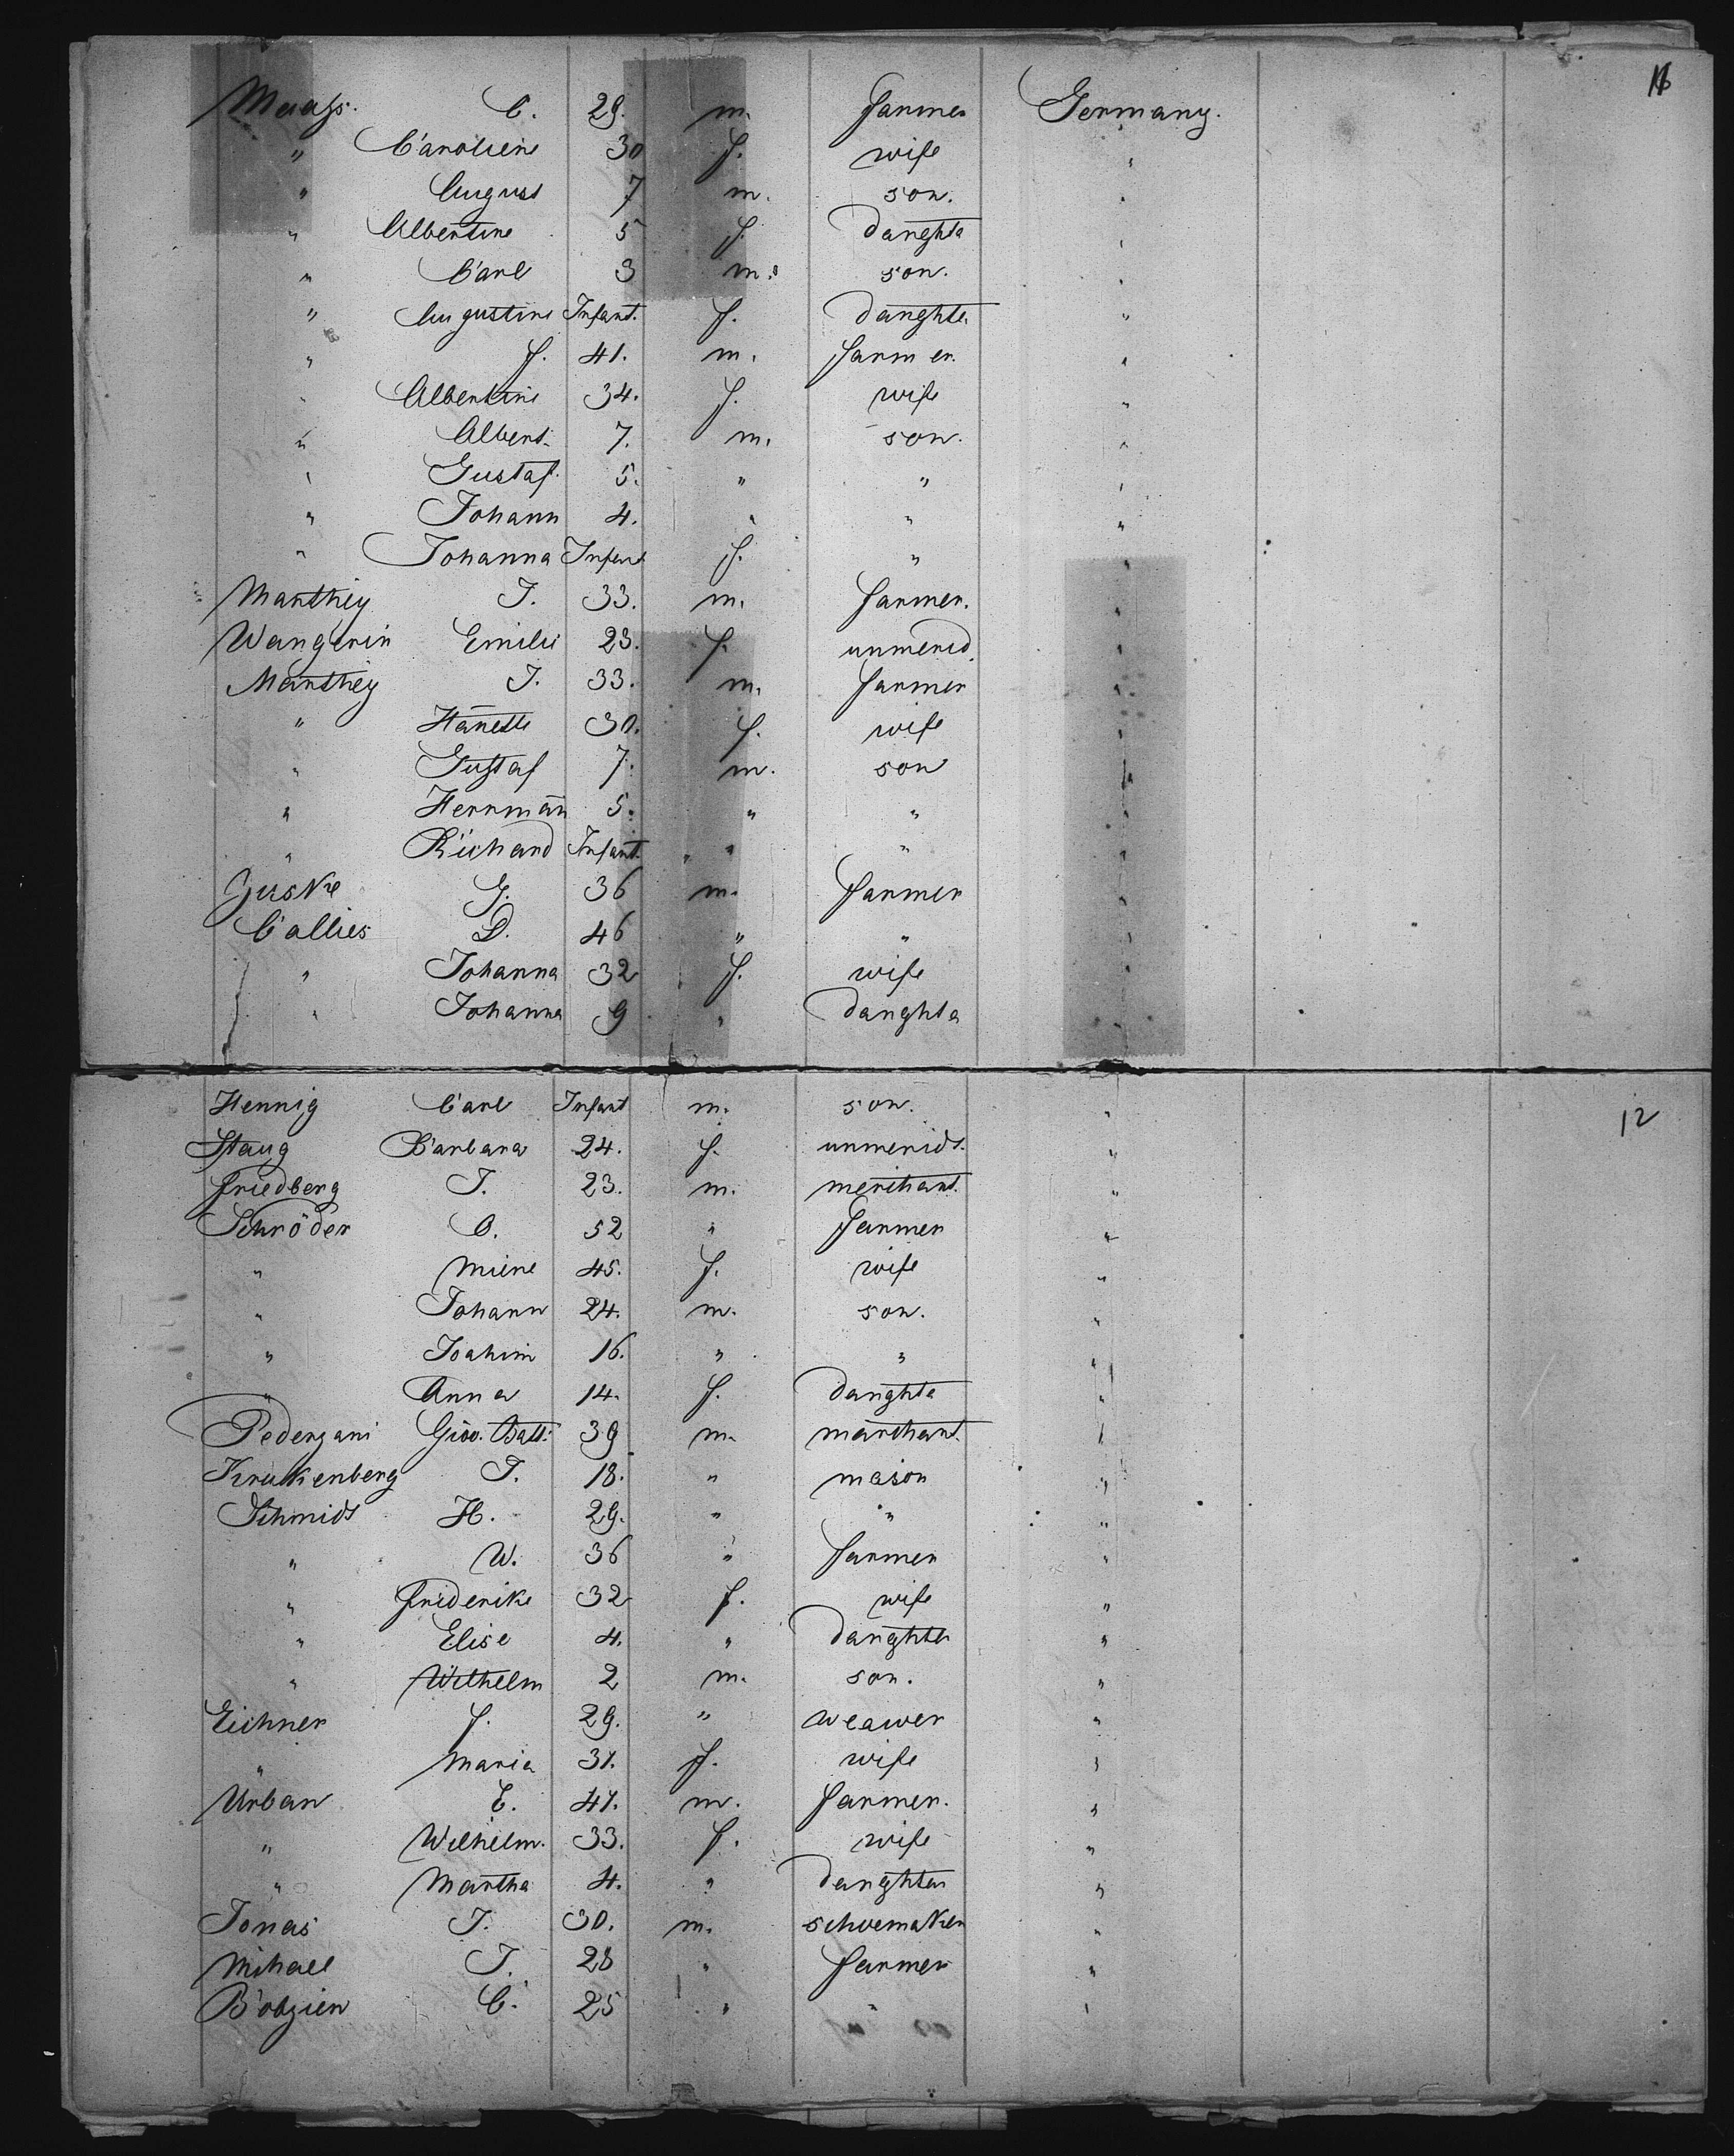 11
Maass. C. 29. m. farmer Germany.
" Caroline 30 f. wife "
" August 7 m. son. "
" Albertine 5 f. daughte "
" Carl 3 m. son. "
" Augustine Infant. f. daughter "
" f. 41. m. farmer. "
" Albertine 34. f. wife "
" Albert. 7. m. son. "
" Gustaf. 5. " " "
" Johann 4. " " "
" Johanna Infant f. " "
Manthey J. 33. m. farmer. "
Wangerin Emilie 23. f. unmerid. "
Manthey J. 33. m. farmer "
" Hanette 30. f. wife "
" Gustaf 7. m. son "
" Herrmann 5. " " "
" Richard Infant. " " "
Guske G. 36 m. farmer "
Callies D. 46 " " "
" Johanna 32 f. wife "
" Johanna 9 " daughte "
Hennig Carl Infant m. son. "
12
Staug Barbara 24. f. unmeridt. "
Friedberg J. 23. m. merchant. "
Schröder O. 52 " farmer "
" Miene 45. f. wife "
" Johann 24. m. son. "
" Joahim 16. " " "
" Anna 14. f. daughte "
Pedergani Giov. Batt: 39 m. marchant. "
Krukenberg J. 18. " mason "
Schmidt H. 29. " " "
" W. 36 " farmer "
" Friderike 32 f. wife "
" Elise 4. " daughter "
" Wilhelm 2 m. son. "
Eichner f. 29. " weawer "
" Maria 31. f. wife "
Urban E. 41. m. farmer. "
" Wilhelm. 33. f. wife "
" Martha 4. " daughter "
Jonas J. 30. m. schoemaker "
Mihael J. 28 " farmer "
Bobzien C. 25 " " "